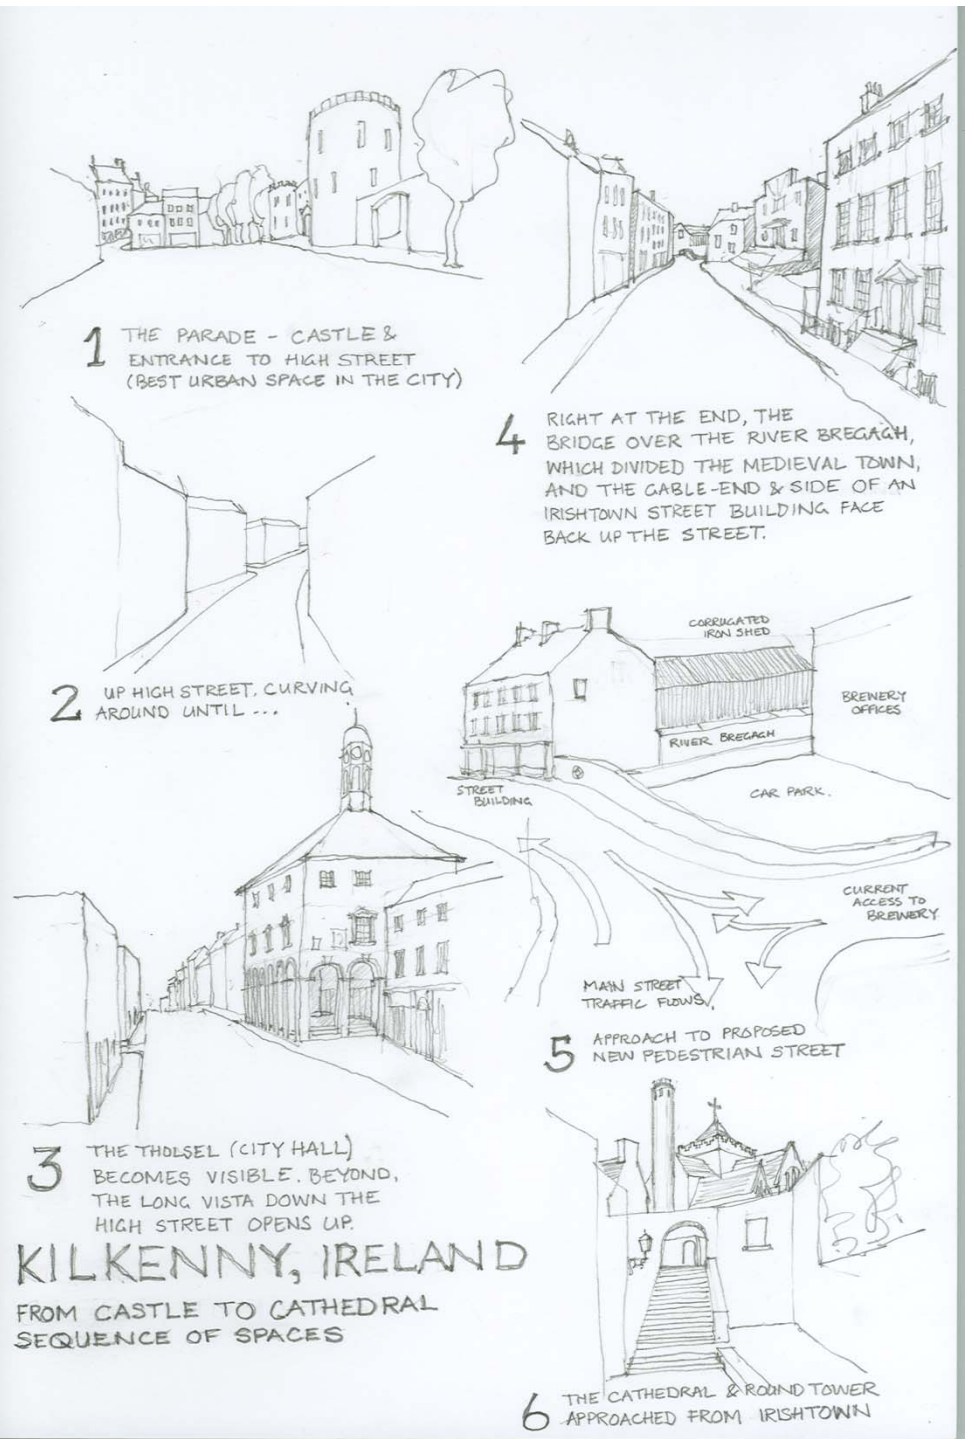 1 THE PARADE - CASTLE &
ENTRANCE TO HIGH STREET
(BEST URBAN SPACE IN THE CITY)
2 UP HIGH STREET, CURVING
AROUND UNTIL ...
3 THE THOLSEL (CITY HALL)
BECOMES VISIBLE. BEYOND,
THE LONG VISTA DOWN THE
HIGH STREET OPENS UP.
KILKENNY, IRELAND
FROM CASTLE TO CATHEDRAL
SEQUENCE OF SPACES
4 RIGHT AT THE END, THE
BRIDGE OVER THE RIVER BREGAGH,
WHICH DIVIDED THE MEDIEVAL TOWN,
AND THE GABLE-END & SIDE OF AN
IRISHTOWN STREET BUILDING FACE
BACK UP THE STREET.
CORRUGATED
IRON SHED
BREWERY
OFFICES
RIVER BREGAGH
STREET
BUILDING
CAR PARK.
CURRENT
ACCESS TO
BREWERY
MAIN STREET
TRAFFIC FLOWS.
5 APPROACH TO PROPOSED
NEW PEDESTRIAN STREET
6 THE CATHEDRAL & ROUND TOWER
APPROACHED FROM IRISHTOWN